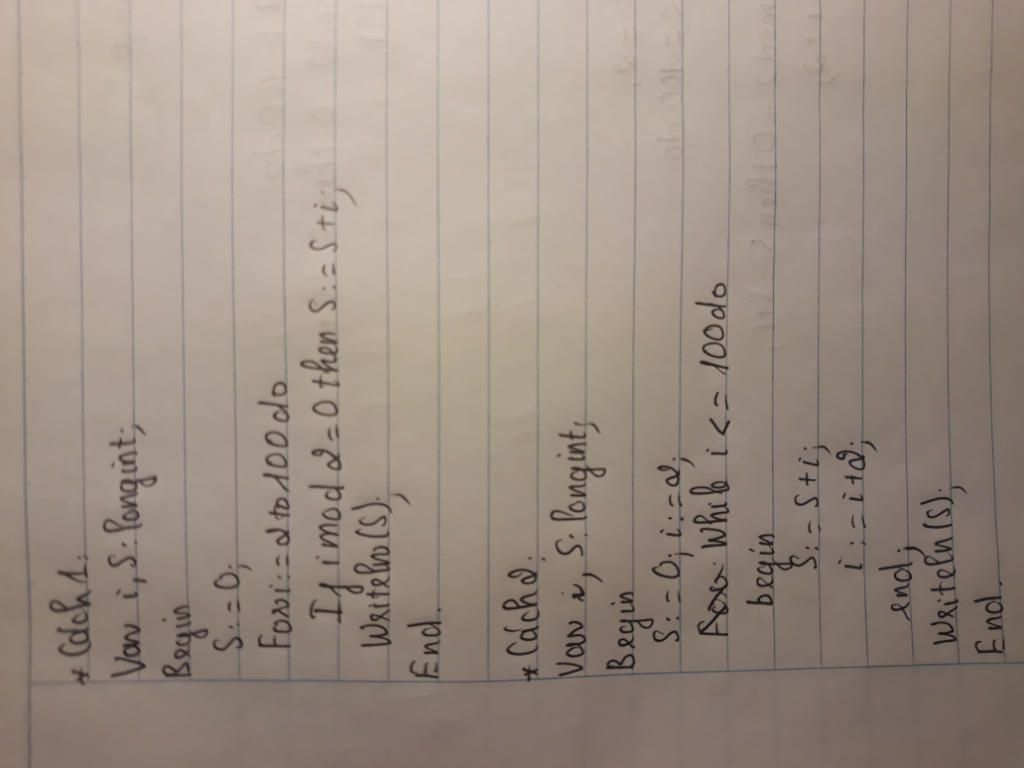 * Cách 1:
Var i, S: longint;
Begin
S:=0;
For i:=2 to 100 do
If i mod 2=0 then S:=S+i;
Writeln(S);
End.
* Cách 2:
Var i, S: longint;
Begin
S:=0; i:=2;
While i <= 100 do
begin
S:=S+i;
i:=i+2;
end;
Writeln(S);
End.